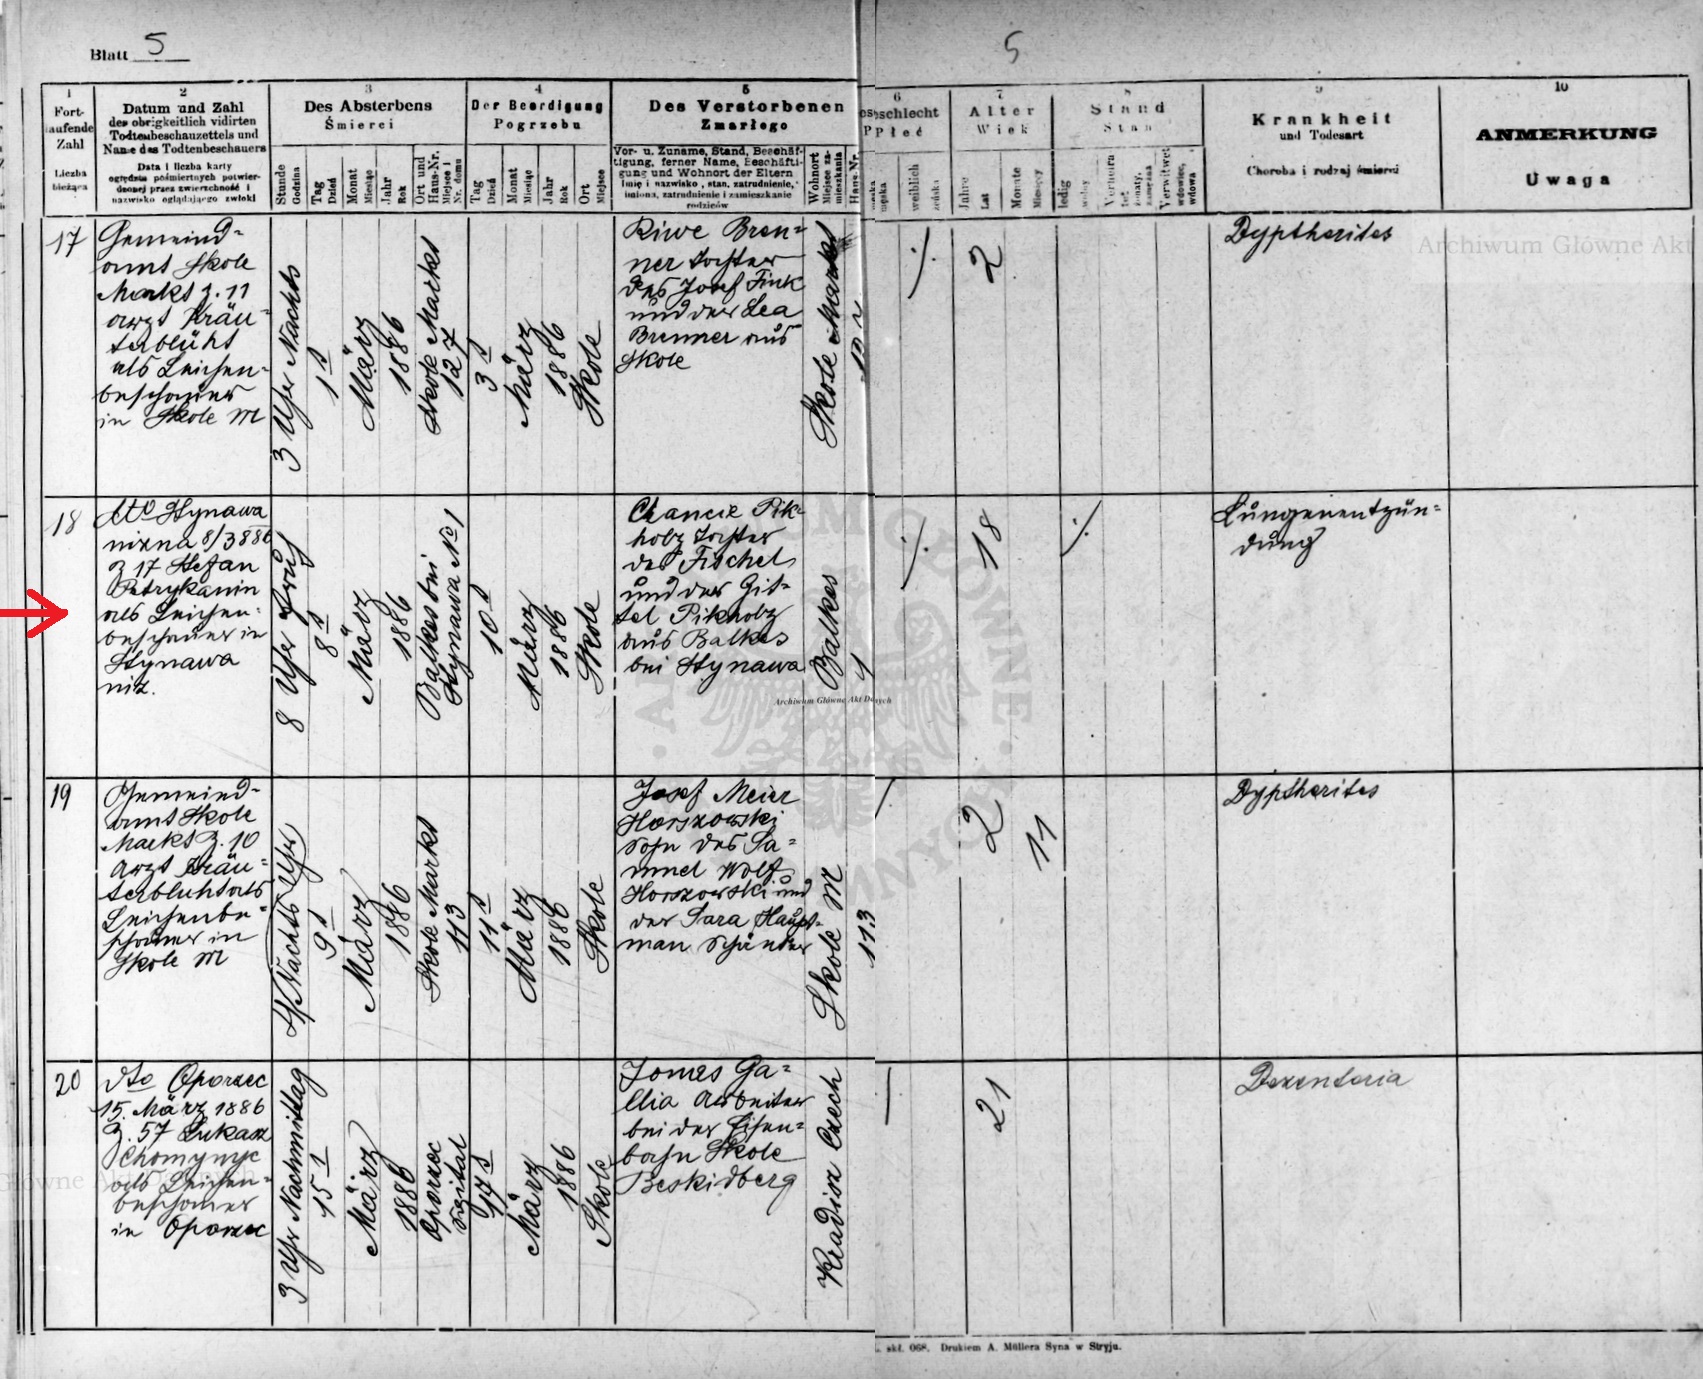 Blatt 5
5
1
Fort-
laufende
Zahl
Liczba
bieżąca
2
Datum und Zahl
des obrigkeitlich vidirten
Todtenbeschauzettels und
Name des Todtenbeschauers
Data i liczba karty
oględzin pośmiertnych potwier-
dzonej przez zwierzchność i
nazwisko oglądającego zwłoki
3
Des Absterbens
Śmierci
Stunde
Godzina
Tag
Dzień
Monat
Miesiąc
Jahr
Rok
Ort und
Haus-Nr.
Miejsce i
Nr. domu
4
Der Beerdigung
Pogrzebu
Tag
Dzień
Monat
Miesiąc
Jahr
Rok
Ort
Miejsce
5
Des Verstorbenen
Zmarłego
Vor- u. Zuname, Stand, Beschäf-
tigung, ferner Name, Beschäfti-
gung und Wohnort der Eltern
Imię i nazwisko, stan, zatrudnienie,
imiona, zatrudnienie i zamieszkanie
rodziców
Wohnort
Miejsce za-
mieszkania
Haus-Nr.
6
Geschlecht
Płeć
weiblich
żeńska
7
Alter
Wiek
Jahre
Lat
Monate
Miesięcy
8
Stand
Stan
ledig
wolny
Verheira-
tet
żonaty,
zamężna
Verwitwet
wdowiec,
wdowa
9
Krankheit
und Todesart
Choroba i rodzaj śmierci
10
ANMERKUNG
Uwaga
17
Gemeind-
amt Skole
Markt z. 11
arzt Kräu-
terblüht
als Leichen-
beschauer
in Skole M
3 Uhr Nachts
1
März
1886
Skole Markt
127
3
März
1886
Skole
Riwe Bren-
ner Tochter
des Josef Fink
und der Lea
Brenner aus
Skole
Skole Markt
/.
2
Dyptherites
18
dto Hynawa
nizna 8/3 886
z 17 Stefan
Petrykanin
als Leichen-
beschauer in
Hynawa
niz.
8 Uhr Früh
8
März
1886
Balkes bei
Hynawa No 1
10
März
1886
Skole
Chancie Pik-
holz Tochter
des Fischel
und der Git-
tel Pikholz
aus Balkes
bei Hynawa
Balkes
1
/.
18
/.
Lungenentzün-
dung
19
Gemeind-
amt Skole
Markt z. 10
Arzt Kräu-
terbluht als
Leichenbe-
schauer in
Skole M
Nachts Uhr
9
März
1886
Skole Markt
113
11
März
1886
Skole
Josef Meier
Horszowski
Sohn des Sa-
muel Wolf
Horszowski und
der Sara Haupt-
man Schänker
Skole M
113
/
2
11
Dyptherites
20
dto Oporzec
15. März 1886
z. 57 Lukasz
Chomynyc
als Leichen-
beschauer
in Oporzec
3 Uhr Nachmittag
15
März
1886
Oporzec
Spital
17
März
1886
Skole
Tomas Ga-
llia Arbeiter
bei der Eisen-
bahn Skole
Beskidberg
Czech
/
21
Dezenteria
Archiwum Główne Akt
Archiwum Główne Akt Dawnych
skł. 068. Drukiem A. Müllera Syna w Stryju.